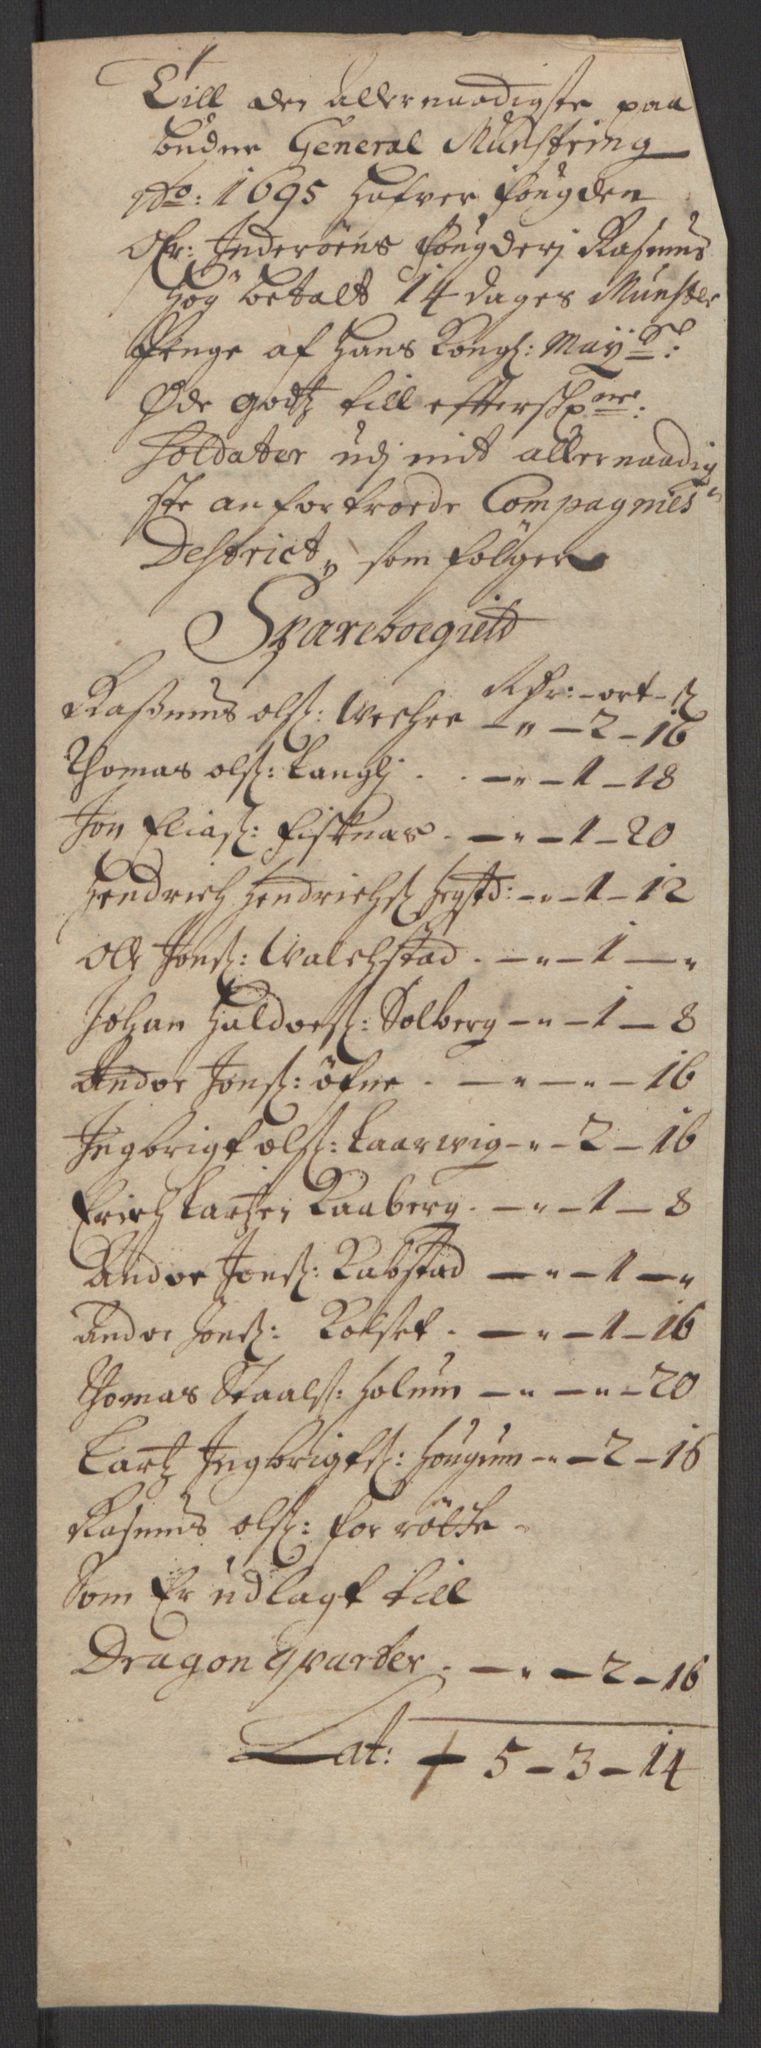 Till den allernaadigste paa
budne General Munstring
Ao: 1695 hafver fougden
ofr: Inderøens fougderj Rasmus
Hög betalt 14 dages Munster
Penge af hans Kongl: Mayst:
Øde godtz till effterschrne:
Soldater udj mit allernaadig
ste anfortroede Compagnies
District, som følger
Spareboegield
Rdr: - ort - s
Rasmus olss: Wechre - " - 2 - 16
Thomas olss: Langlj - " - 1 - 18
Jon Eliass: fisknas - " - 1 - 20
Hendrich Hendrichss Hegstd: - " - 1 - 12
Ole Jonss: Walchstad - " - 1 - "
Johan Haldorss: Solberg - " - 1 - 8
Andor Jonss: öfne - " - " - 16
Ingbrigt olss: Laarwig - " - 2 - 16
Erich Lartzen Raaberg - " - 1 - 8
Andor Jonss: Kabstad - " - 1 - "
Andor Jonss: Kolset - " - 1 - 16
Thomas Staalss: Holum - " - " - 20
Lartz Ingbrigtss: Hougum - " - 2 - 16
Rasmus olss: for röttte
Som Er udlagt till
Dragon qvarter - " - 2 - 16
Lat: 5 - 3 - 14